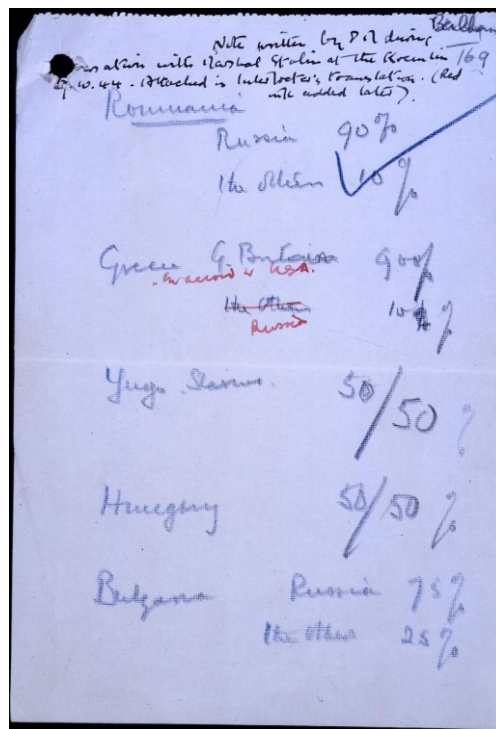 Note written by P.M. during
conversation with Marshal Stalin at the Kremlin 169
9.10.44. Attached is Interpreter's translation. (Red
ink added later).
Roumania
Russia 90%
The others 10%
Greece G. Britain 90%
in accord w USA.
The Others 10%
Russia
Yugo Slavia. 50/50 %
Hungary 50/50 %
Bulgaria Russia 75%
The others 25%